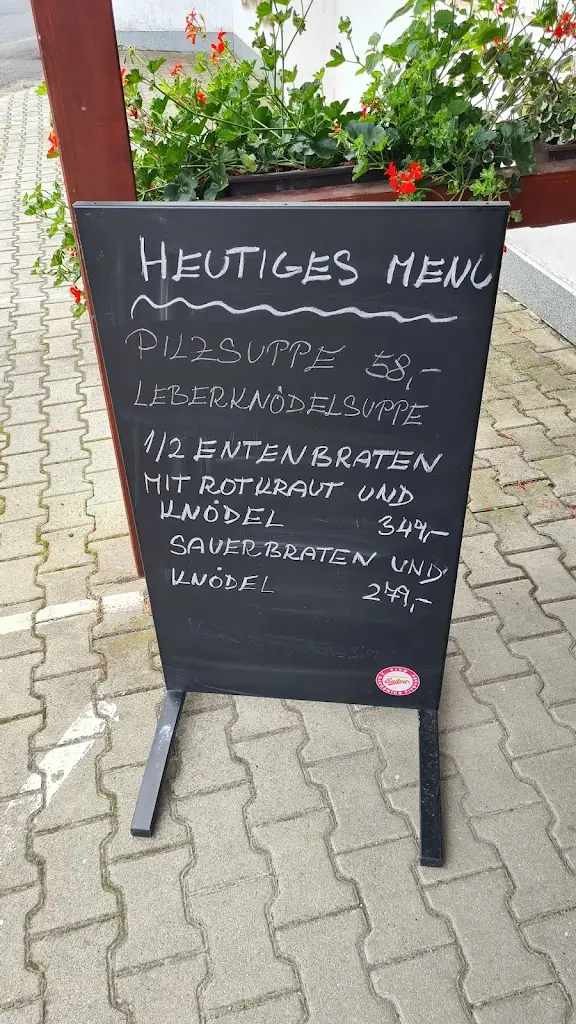 HEUTIGES MENU
PILZSUPPE 58,-
LEBERKNÖDELSUPPE
1/2 ENTENBRATEN
MIT ROTKRAUT UND
KNÖDEL 349,-
SAUERBRATEN UND
KNÖDEL 279,-